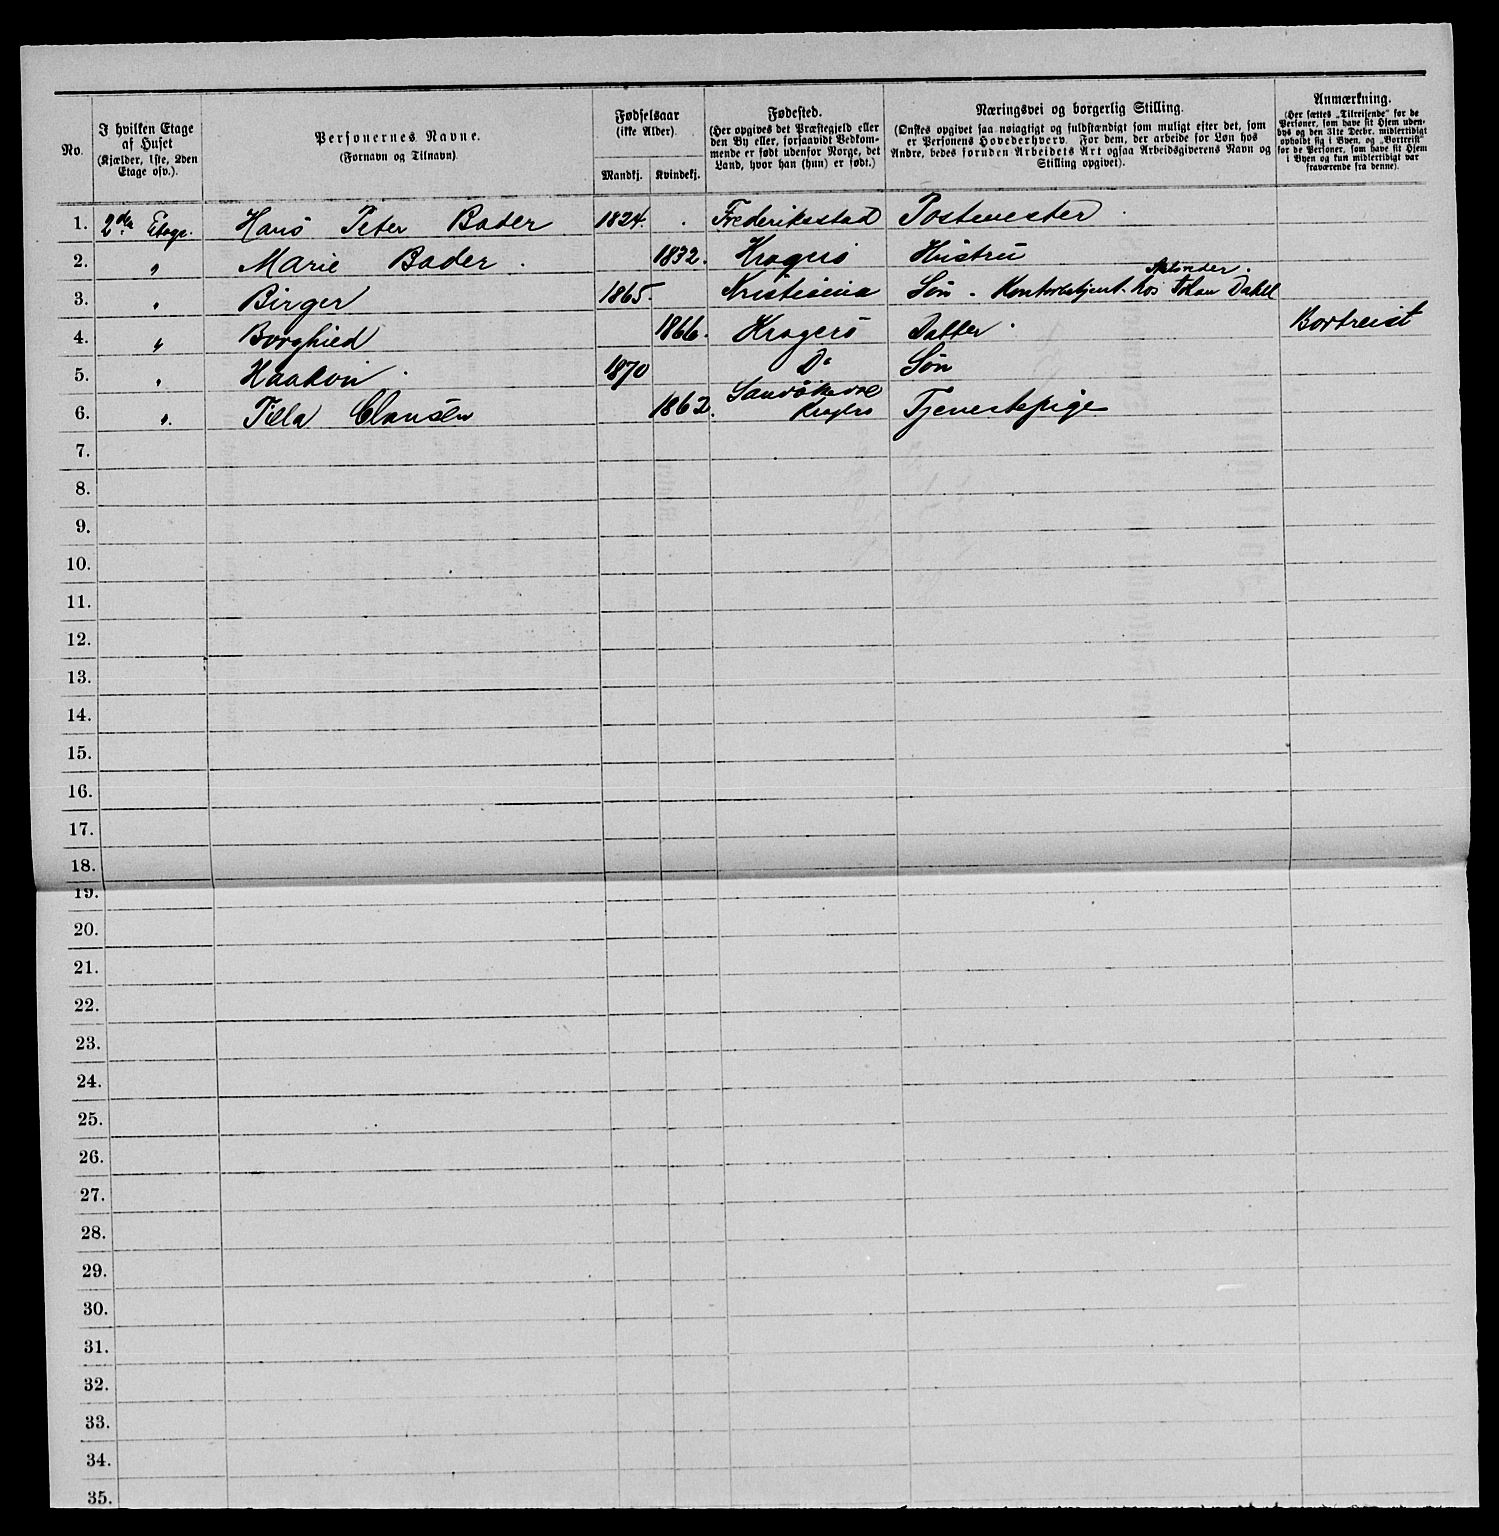 No.
I hvilken Etage
af Huset
(Kjælder, 1ste, 2den
Etage osv.).
Personernes Navne.
(Fornavn og Tilnavn)
Fødselsaar
(ikke Alder)
Mandkj. Kvindekj.
Fødested.
(Her opgives det Præstegjeld eller
den By eller, forsaavidt Vedkom-
mende er født udenfor Norge, det
Land, hvor han (hun) er født.)
Næringsvei og borgerlig Stilling.
(Ønskes opgivet saa nøiagtigt og fuldstændigt som muligt efter det, som
er Personens Hovederhverv. For dem, der arbeide for Løn hos
Andre, bedes foruden Arbeidets Art ogsaa Arbeidsgiverens Navn og
Stilling opgivet).
Anmærkning.
(Her sættes „Tilreisende" for de
Personer, som have sit Hjem uden-
bys og den 31te Decbr. midlertidigt
opholdt sig i Byen, og „Bortreist"
for de Personer, som have sit Hjem
i Byen og kun midlertidigt var
fraværende fra denne).
1. 2den Etage. Hans Peter Bader 1824. Frederikstad Postmester
2. " Marie Bader . 1832. Kragerö Hustru
3. " Birger 1865. Kristiania Sön . Kontorbetjent. hos Johan Dahll
4. " Borghied 1866. Kragerö Datter . Bortreist
5. " Haakon . 1870 Do Sön
6. ". Tilla Clausen 1862. Sandökedal Tjenestepige
Kragerö
7.
8.
9.
10.
11.
12.
13.
14.
15.
16.
17.
18.
19.
20.
21.
22.
23.
24.
25.
26.
27.
28.
29.
30.
31.
32.
33.
34.
35.